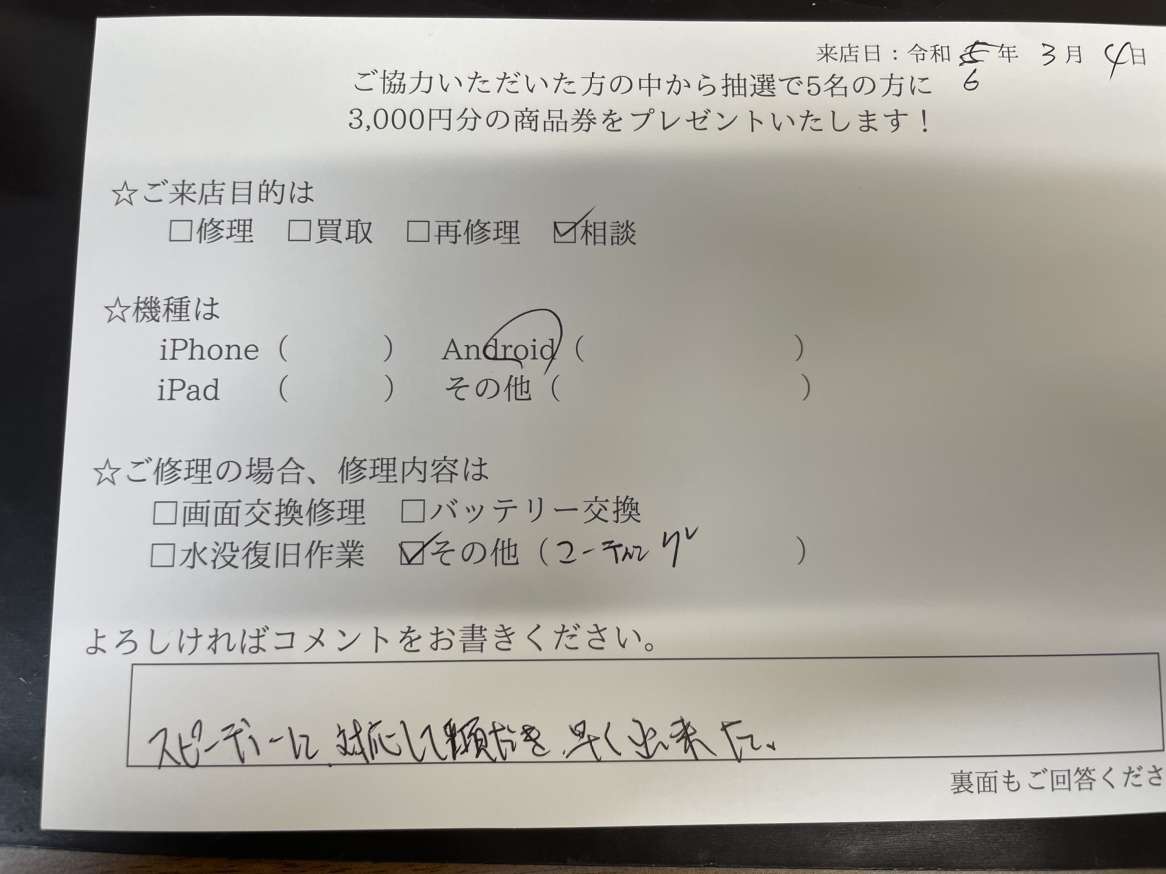 来店日：令和 6 年 3 月 4 日
ご協力いただいた方の中から抽選で5名の方に
3,000円分の商品券をプレゼントいたします！
☆ご来店目的は
□修理 □買取 □再修理 ☑相談
☆機種は
iPhone（ ） Android（ ）
iPad （ ） その他（ ）
☆ご修理の場合、修理内容は
□画面交換修理 □バッテリー交換
□水没復旧作業 ☑その他（コーティング ）
よろしければコメントをお書きください。
スピーディーに対応して頂だき早く出来た。
裏面もご回答くださ